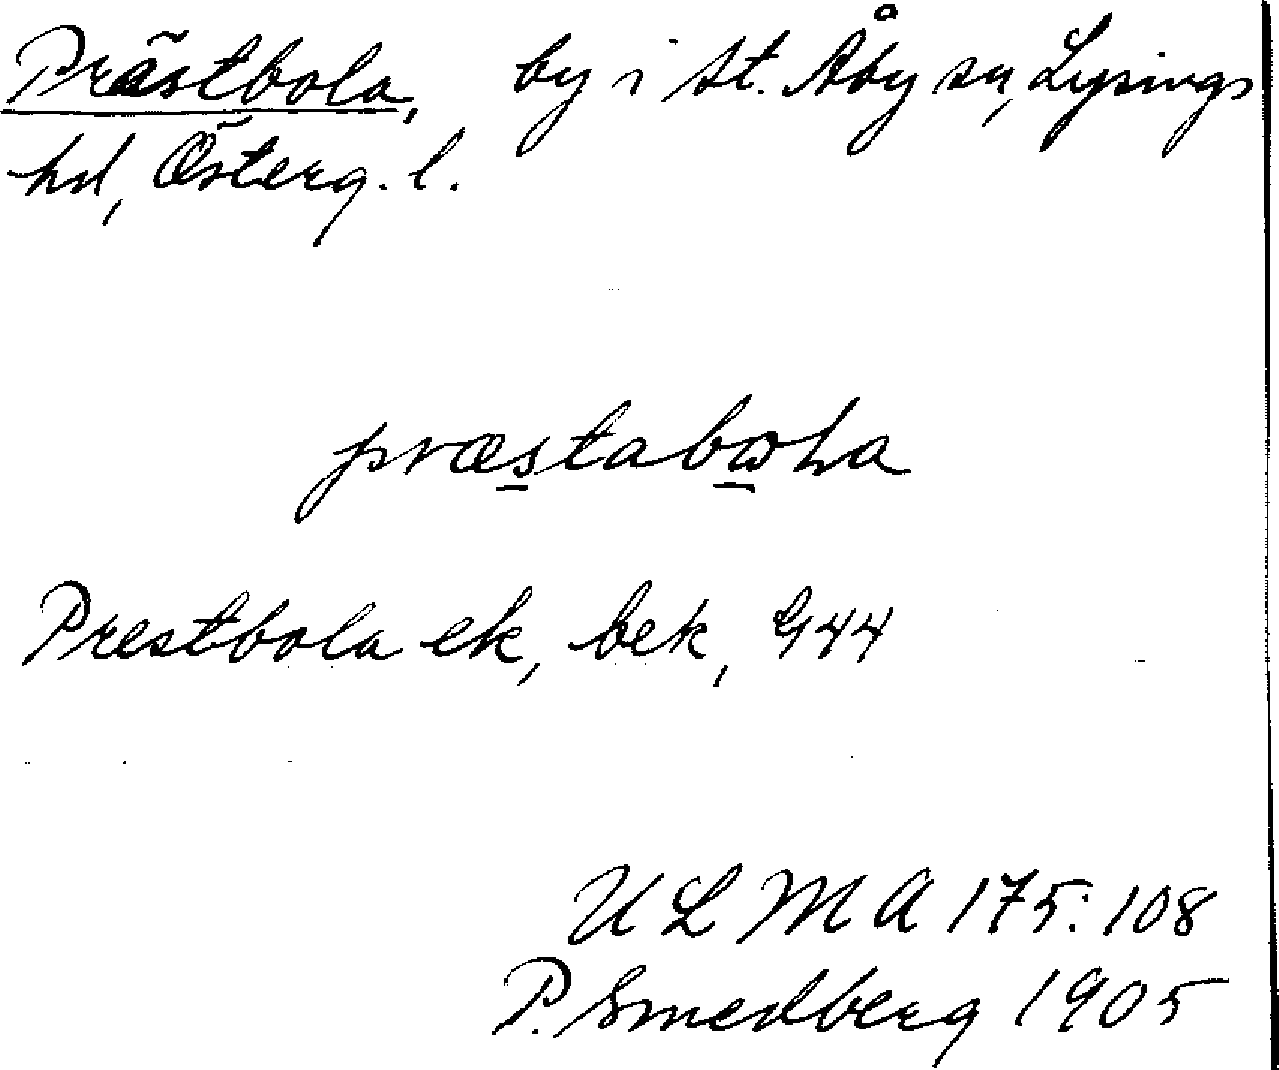 Prästbola, by i St. Åby sn, Lysings
hd, Österg. l.
præstabωla
Prestbola ek, bek, G44
ULMA 175:108
P. Smedberg 1905